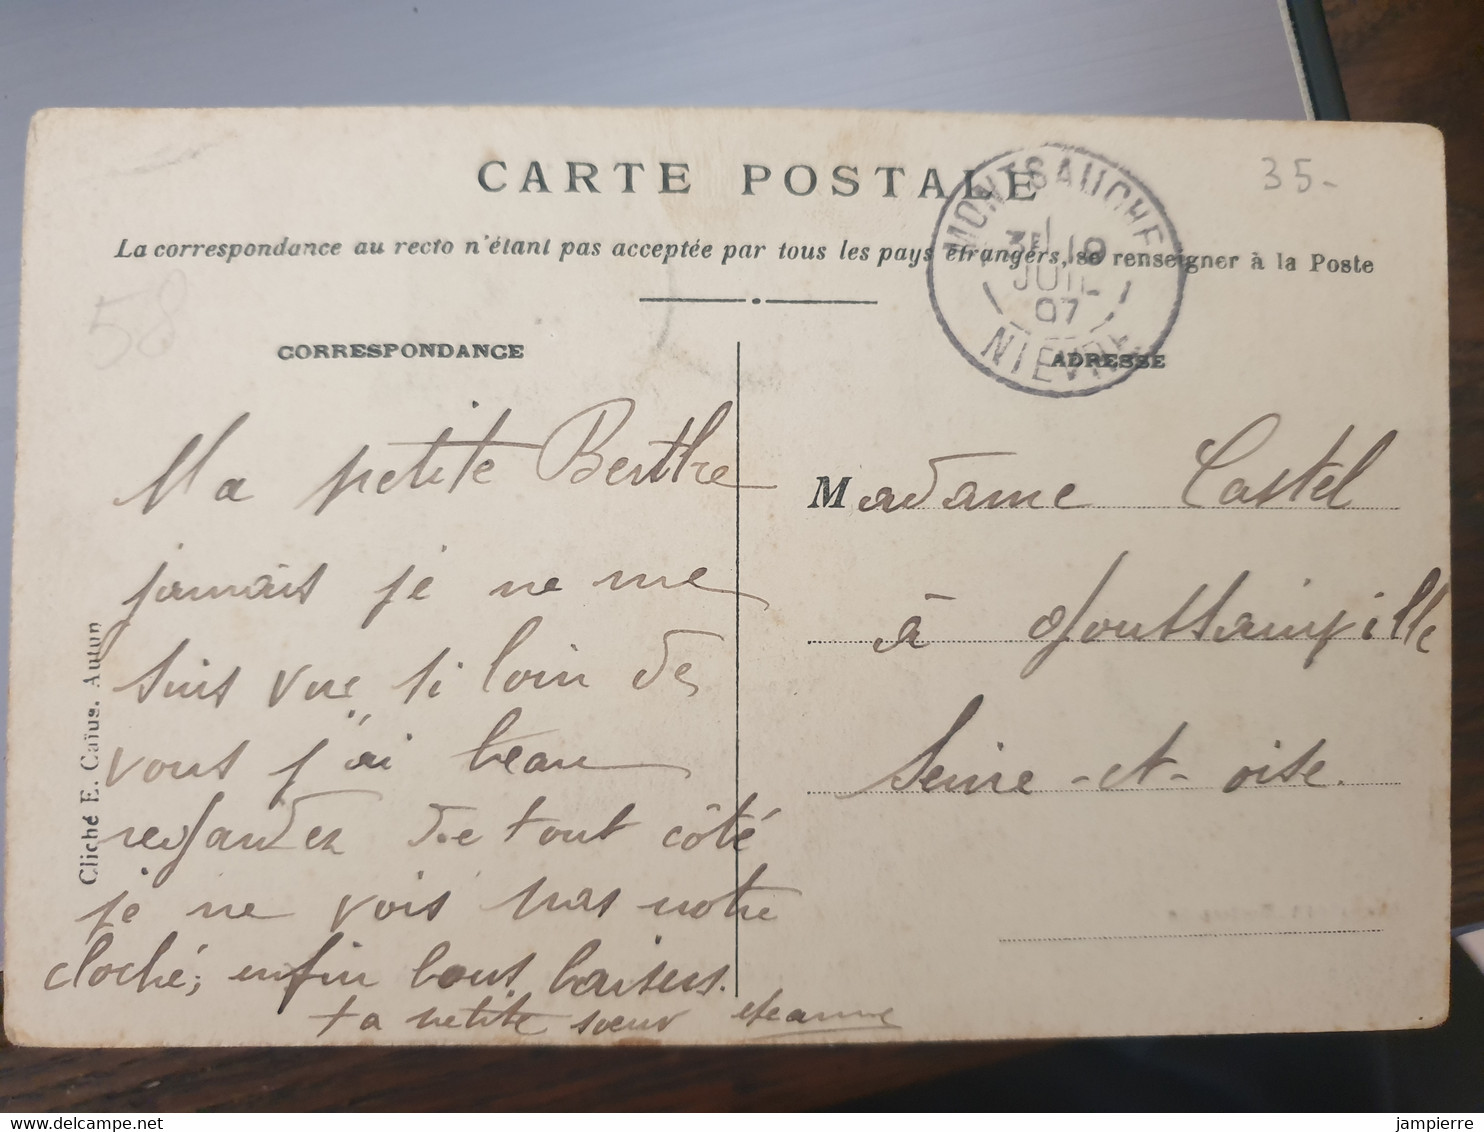 CARTE POSTALE
35-
La correspondance au recto n'étant pas acceptée par tous les pays étrangers, se renseigner à la Poste
MONTSAUCHE
19
JUIL
07
NIEVRE
58
CORRESPONDANCE
ADRESSE
Ma petite Berthe
jamais je ne me
suis vue si loin de
vous j'ai beau
regarder de tout côté
je ne vois pas notre
cloché; enfin bons baisers.
ta petite sœur Jeanne
Madame Castel
à Goussainville
Seine-et-oise.
Cliché E. Caïus. Autun
jampierre